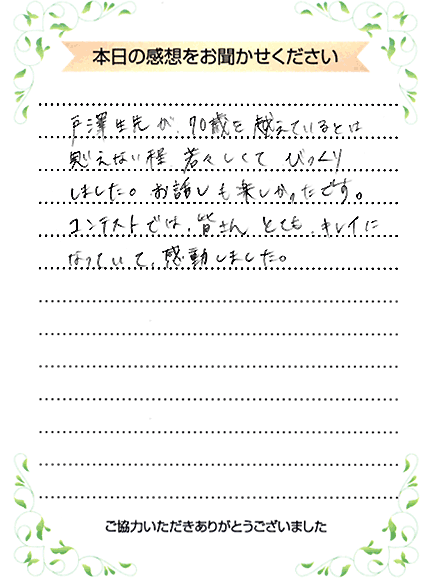 本日の感想をお聞かせください
戸澤先生が、70歳を越えているとは
思えない程、若々しくて びっくり
しました。お話しも楽しかったです。
コンテストでは、皆さん とても キレイに
なっていて、感動しました。
ご協力いただきありがとうございました